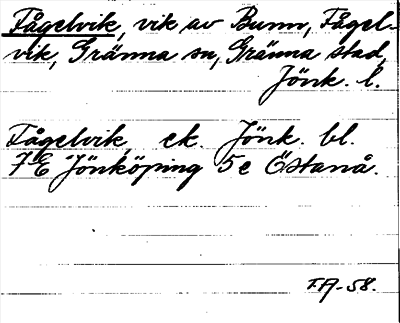 Fågelvik, vik av Bunn, Fågel-
vik, Gränna sn, Gränna stad,
Jönk. l.
Fågelvik, ek. Jönk. bl.
7E Jönköping 5e Östanå.
F.A-58.